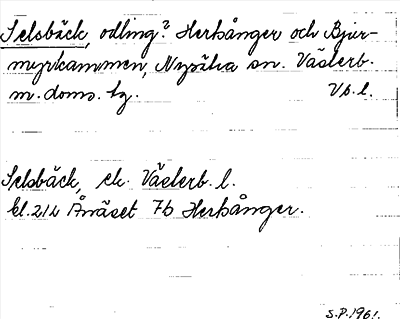 Selsbäck, odling? Herhånger och Bjur-
myrkammen, Nysätra sn. Västerb.
m. doms. tg. Vb. l.
Selsbäck, ek. Västerb. l.
bl. 21h Ånäset 7b Herhånger.
S.P. 1961.